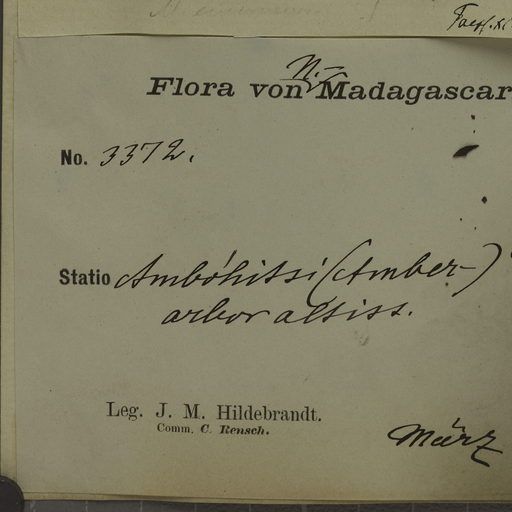 N.-
Flora von Madagascar
No. 3372.
Statio Ambóhitsi (Amber-)
arbor altiss.
Leg. J. M. Hildebrandt.
Comm. C. Rensch.
März